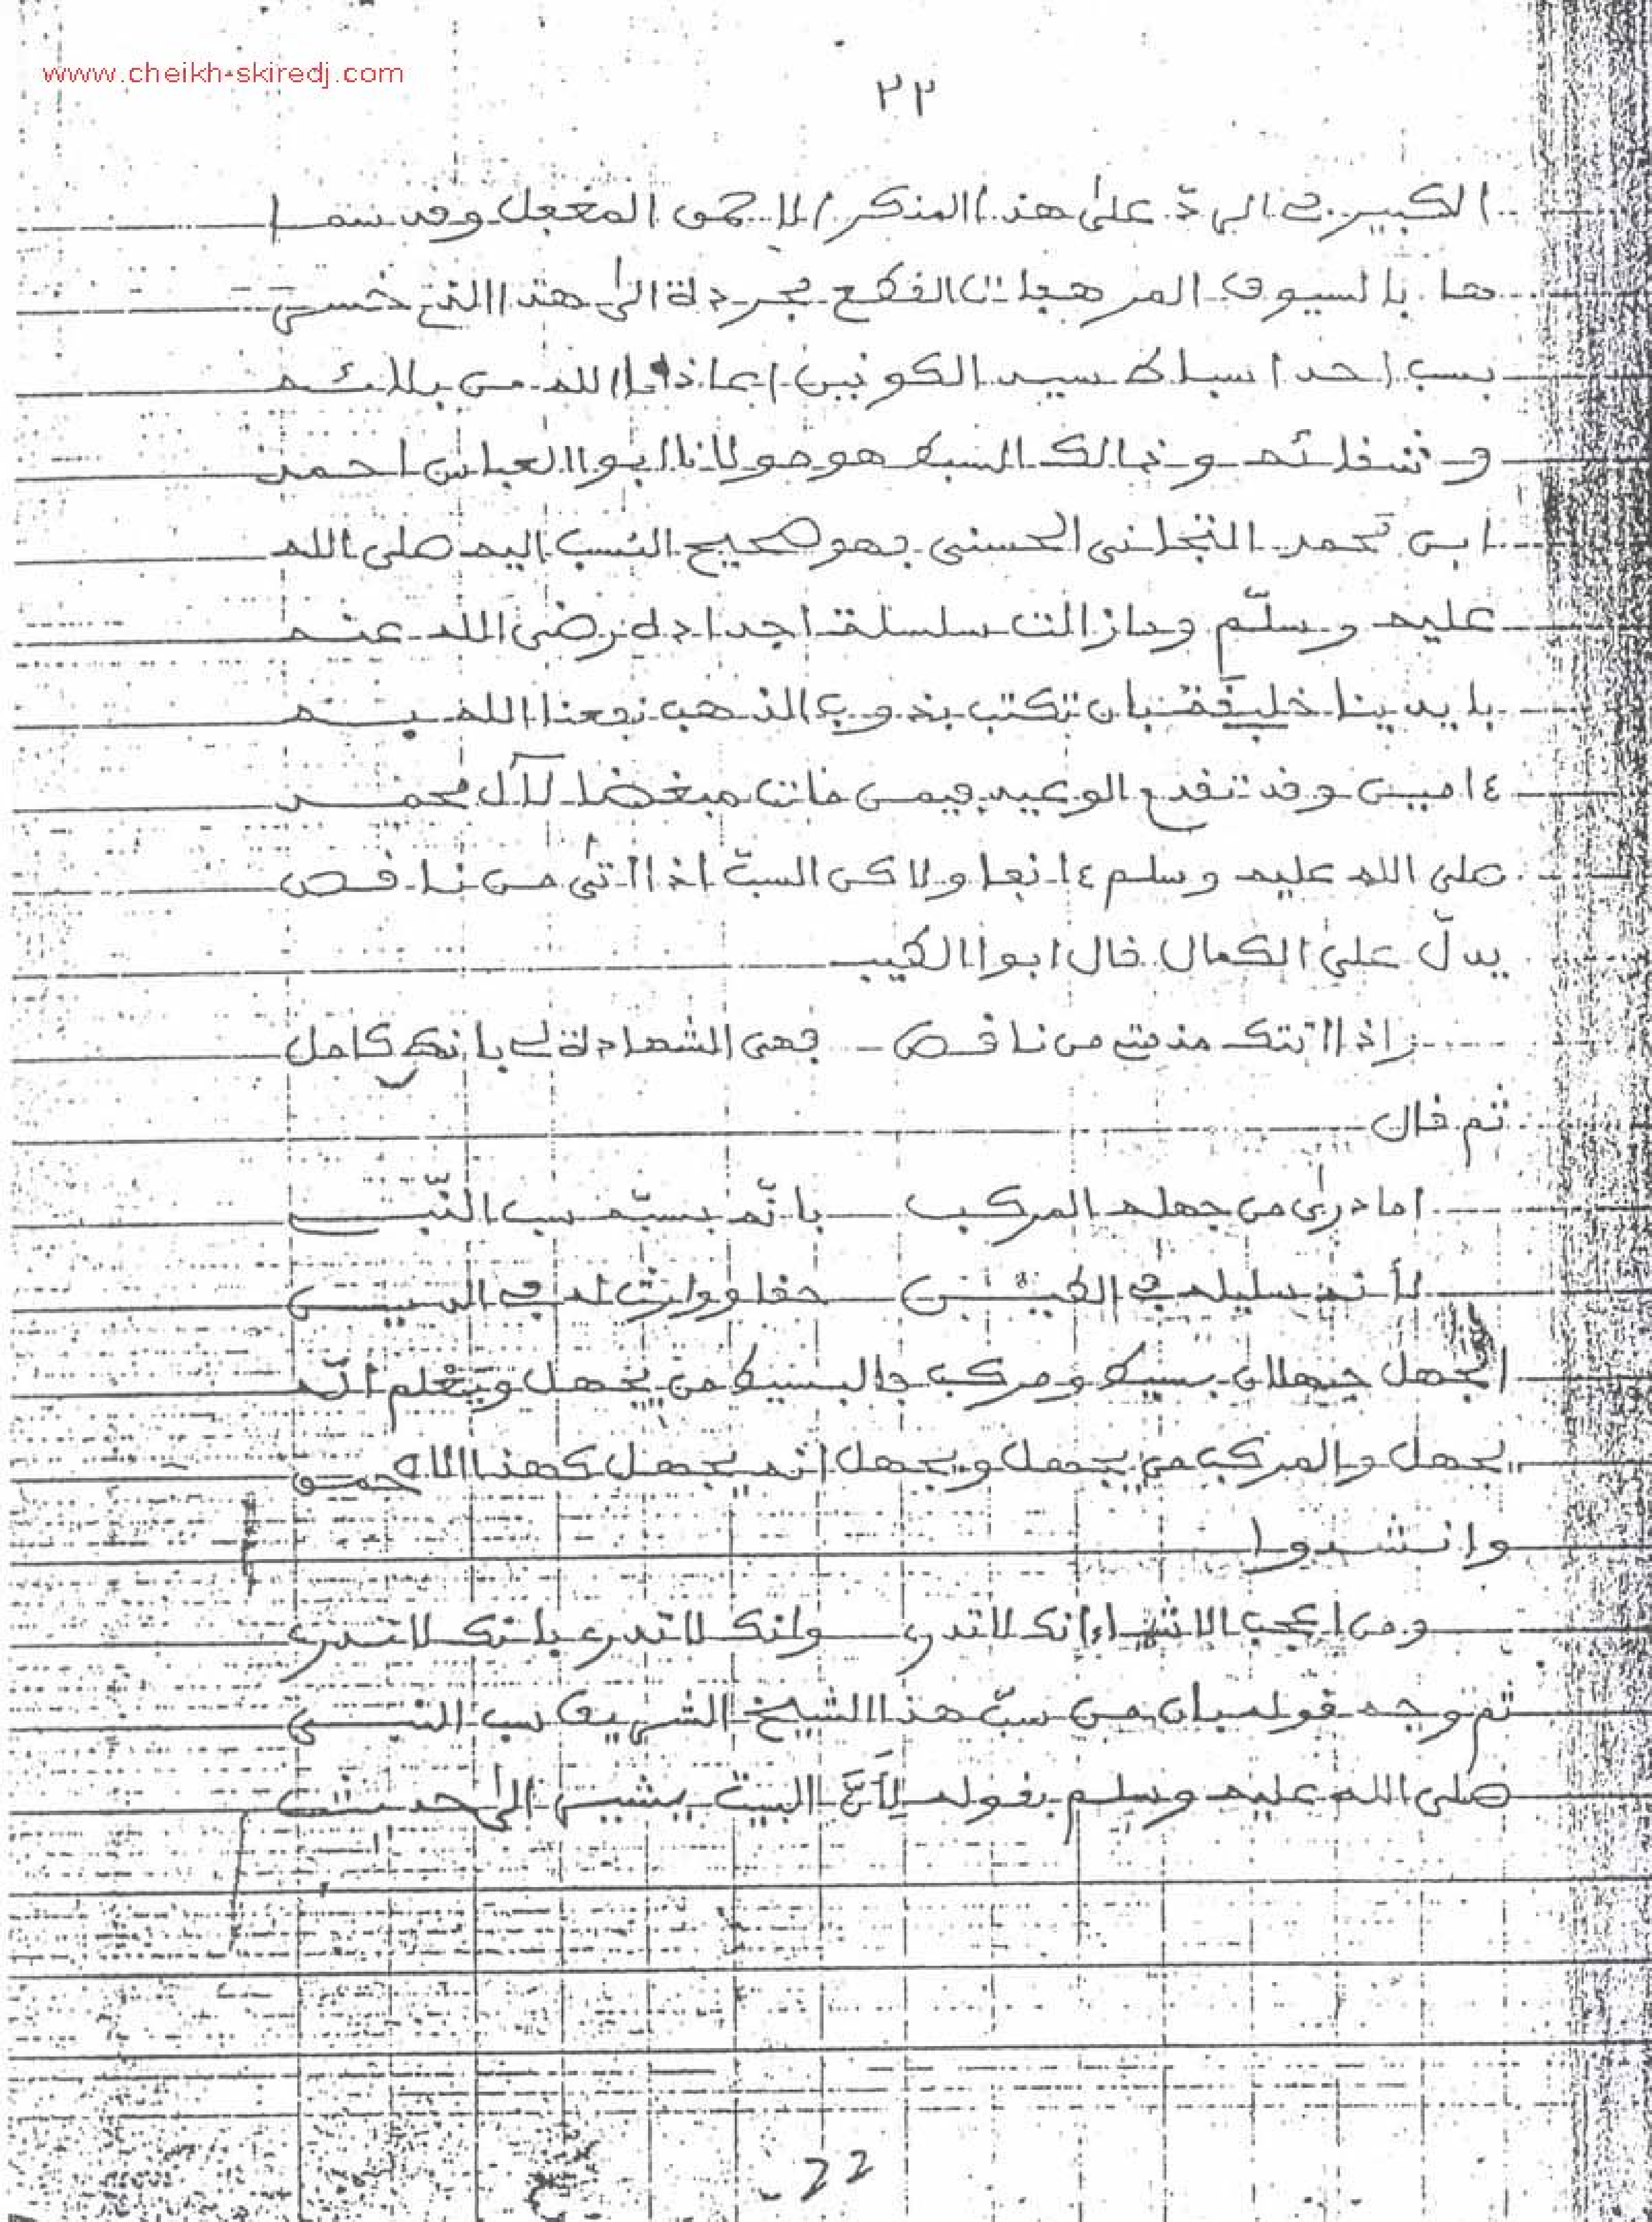 www.cheikh-skiredj.com
٢٢
الكبير في الردّ على هذا المنكر الاحمق المغفل وقد سما
ها بالسيوف المرهبات القطع مجردة الى هذا الذي خسى
بسب احد اسباط سيد الكونين اعاذنا الله من بلائه
و شقائه وذالك السبط هو مولانا ابوا العباس احمد
ابن محمد التجانى الحسنى فهو صحيح النسب اليه صلى الله
عليه وسلّم ومازالت سلسلة اجداده رضى الله عنه
بايدينا خليقة بان تكتب بذوب الذهب نفعنا الله به
ءامين وقد تقدم الوعيد فيمن مات مبغضا لآل محمد
صلى الله عليه وسلم ءانفا ولاكن السبّ اذا اتى من ناقص
يدلّ على الكمال قال ابوا الطيب
واذا اتتك مذمتى من ناقص فهى الشهادة لى بانى كامل
ثم قال
اما درى من جهله المركب بانّه بسبّه سب النّبى
لأنه سليله في الطين حقا ووارث له في الدين
الجهل جهلان بسيط ومركب فالبسيط من يجهل ويَعْلم انّه
يجهل والمركب من يجهل ويجهل انه يجهل كهذا الاحمق
وانشدوا
ومن اعجب الاشياء انك لاتدرى وانك لاتدرى بانك لاتدرى
ثم وجه قوله بان من سبّ هذا الشيخ الشريف سب النبى
صلى الله عليه وسلم بقوله لِأَنَّ البيت يشير الى حديث
22